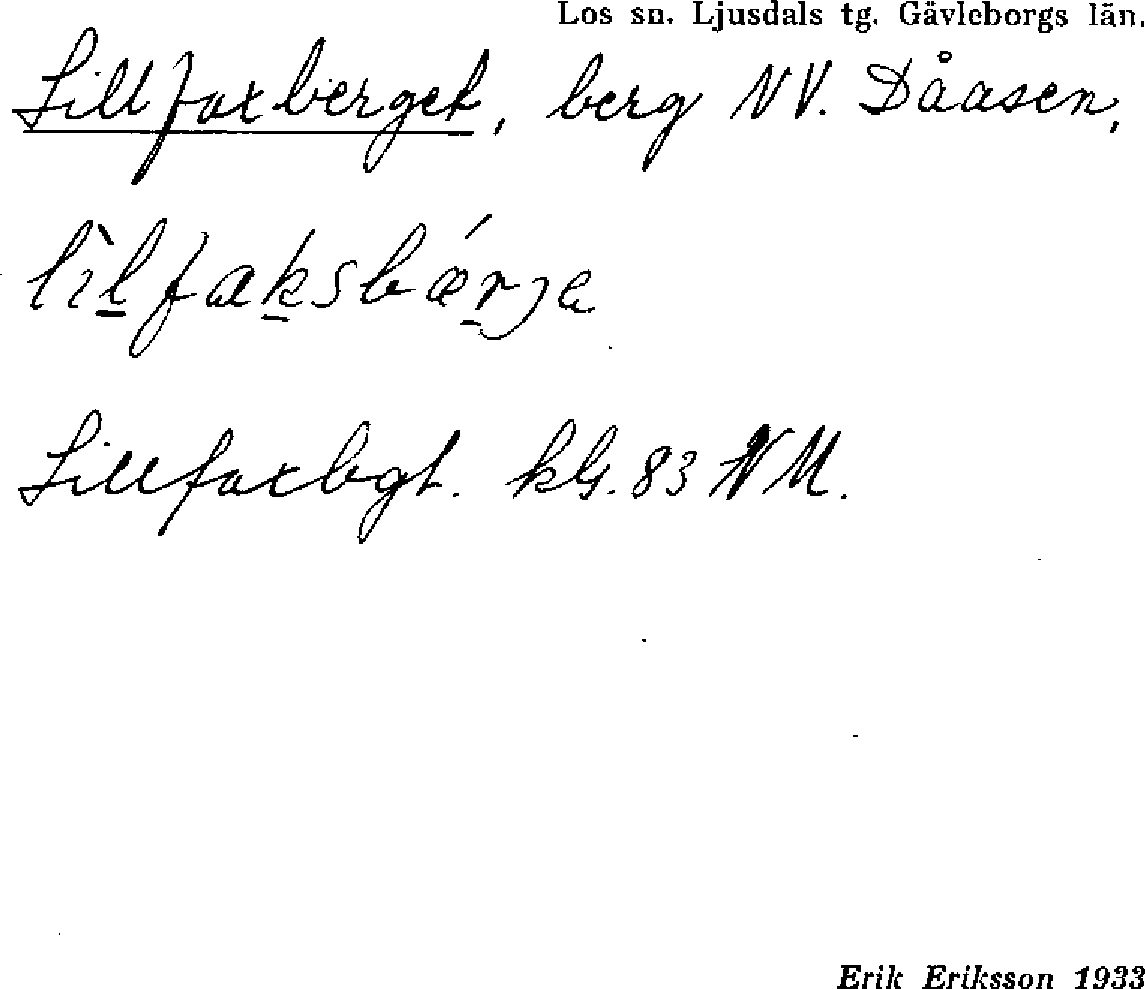 Los sn. Ljusdals tg. Gävleborgs län.
Lillfaxberget, berg NV. Dåasen,
lìlfaksbǽrja
Lillfaxbgt. kbl. 83 NM.
Erik Eriksson 1933